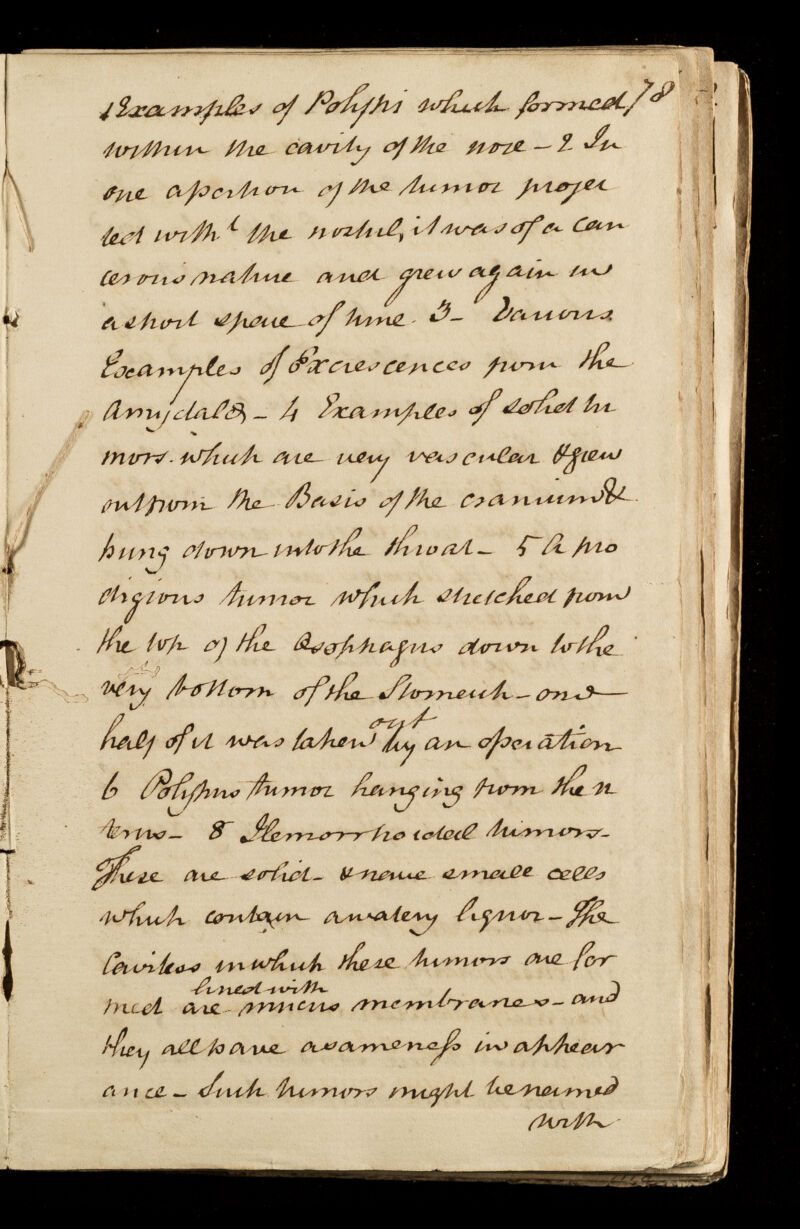 1 Examples of Polypi which formed 78
within the cavity of the nose - 2 In
one a portion of the tumor projec
ted with.t the nostril, it was of a can
cerous nature and grew again in
a short space of time. 3 - Various
Examples of Excrescences from the
Amydale - 4 Examples of solid tu
mors. which are very vascular & grew
out from the Basis of the cranium &
hung down into the throat - 5 A pro
digious tumor which stretched from
the top of the Œsophagus down to the
very bottom of the Stomach - one
half of it was taken out by an operation
6 Polypus tumor hanging from the u
terus - 8 Hemorrhoidal tumors -
These are solid - & have small cells
which contain a watery liquor - The
Cavities in which these tumors are for
med are lined with mucus membranes - and
they all have a sameness in appear
ance - Such tumors might be named
with